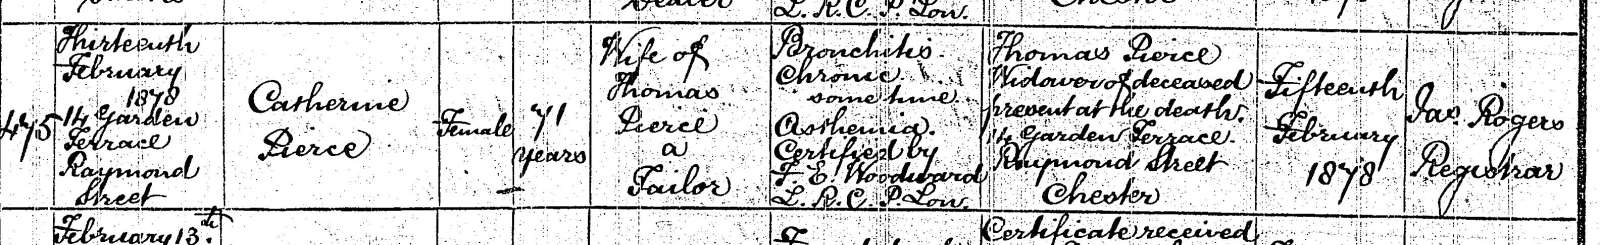 L. R. C. P. Lon.
475
Thirteenth
February
1878
14 Garden
Terrace
Raymond
Street
Catherine
Pierce
Female
71
years
Wife of
Thomas
Pierce
a
Tailor
Bronchitis
Chronic
some time
Asthenia.
Certified by
F. E. Woodward
L. R. C. P. Lon.
Thomas Pierce
Widower of deceased
present at the death.
14 Garden Terrace.
Raymond Street
Chester
Fifteenth
February
1878
Jas. Rogers
Registrar
February 13th
Certificate received